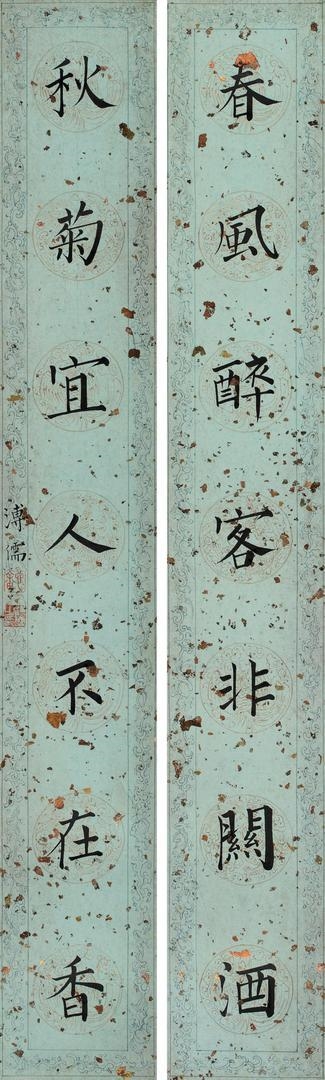 春風醉客非關酒
秋菊宜人不在香
溥儒